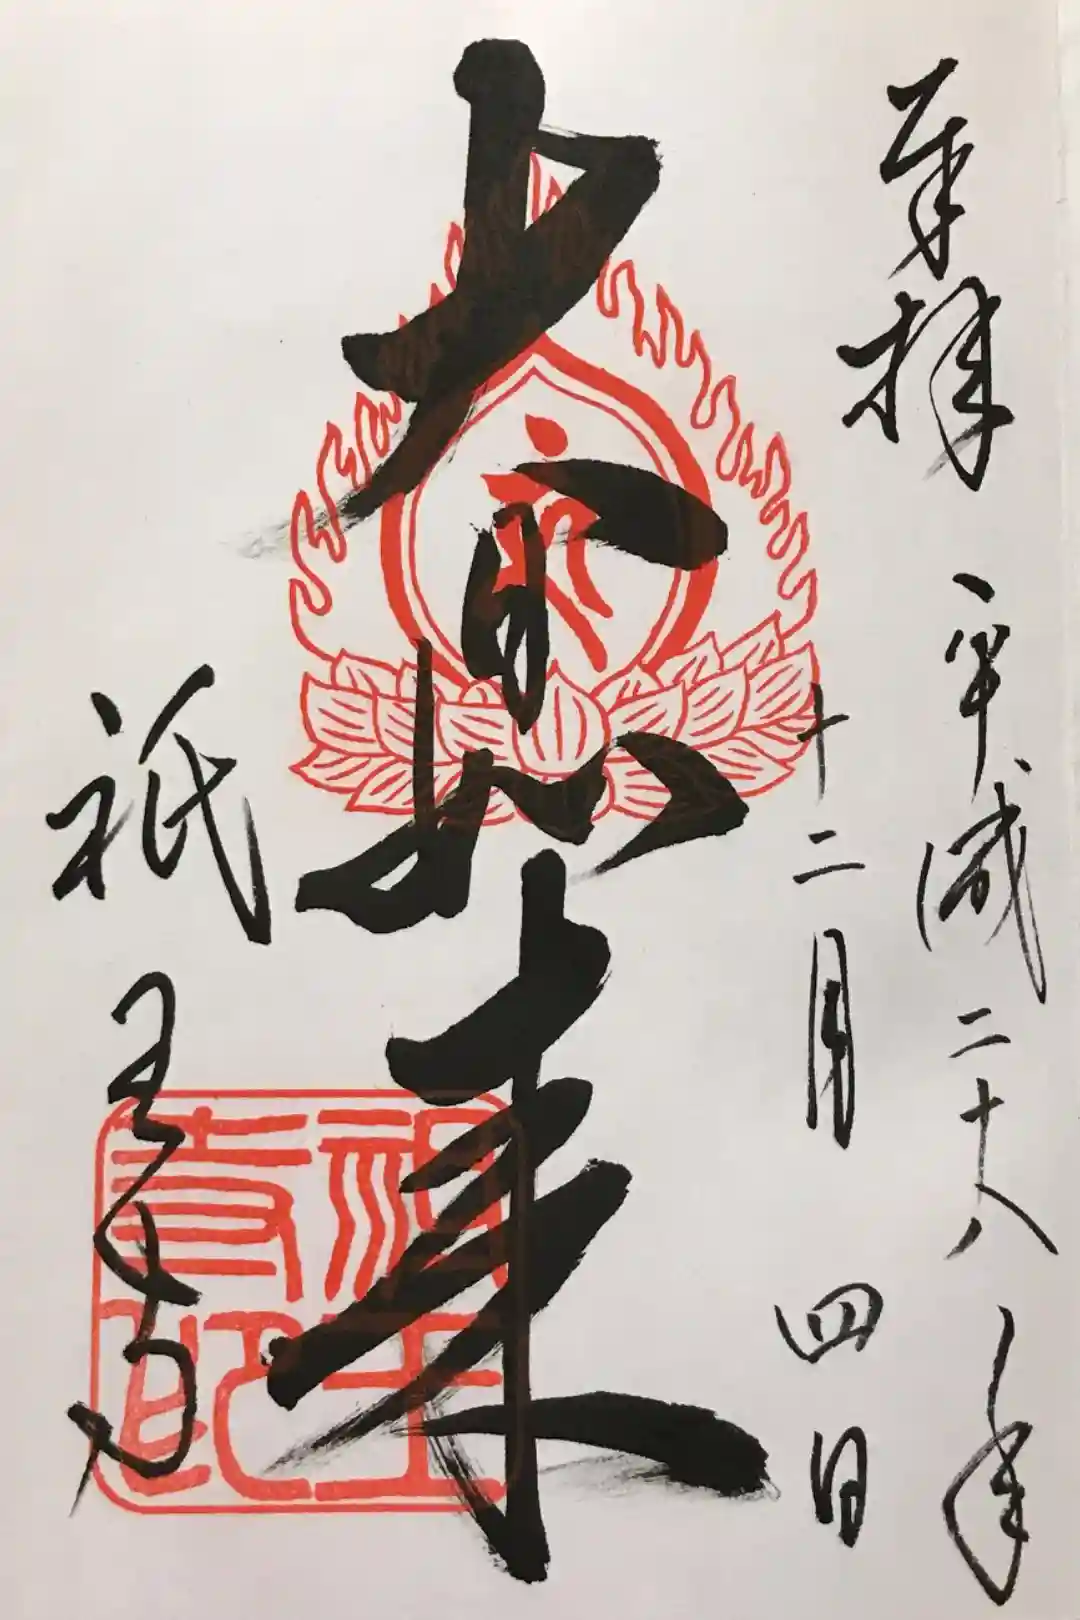 奉拝
平成二十八年
十二月四日
大日如来
祇王寺
祇王寺記